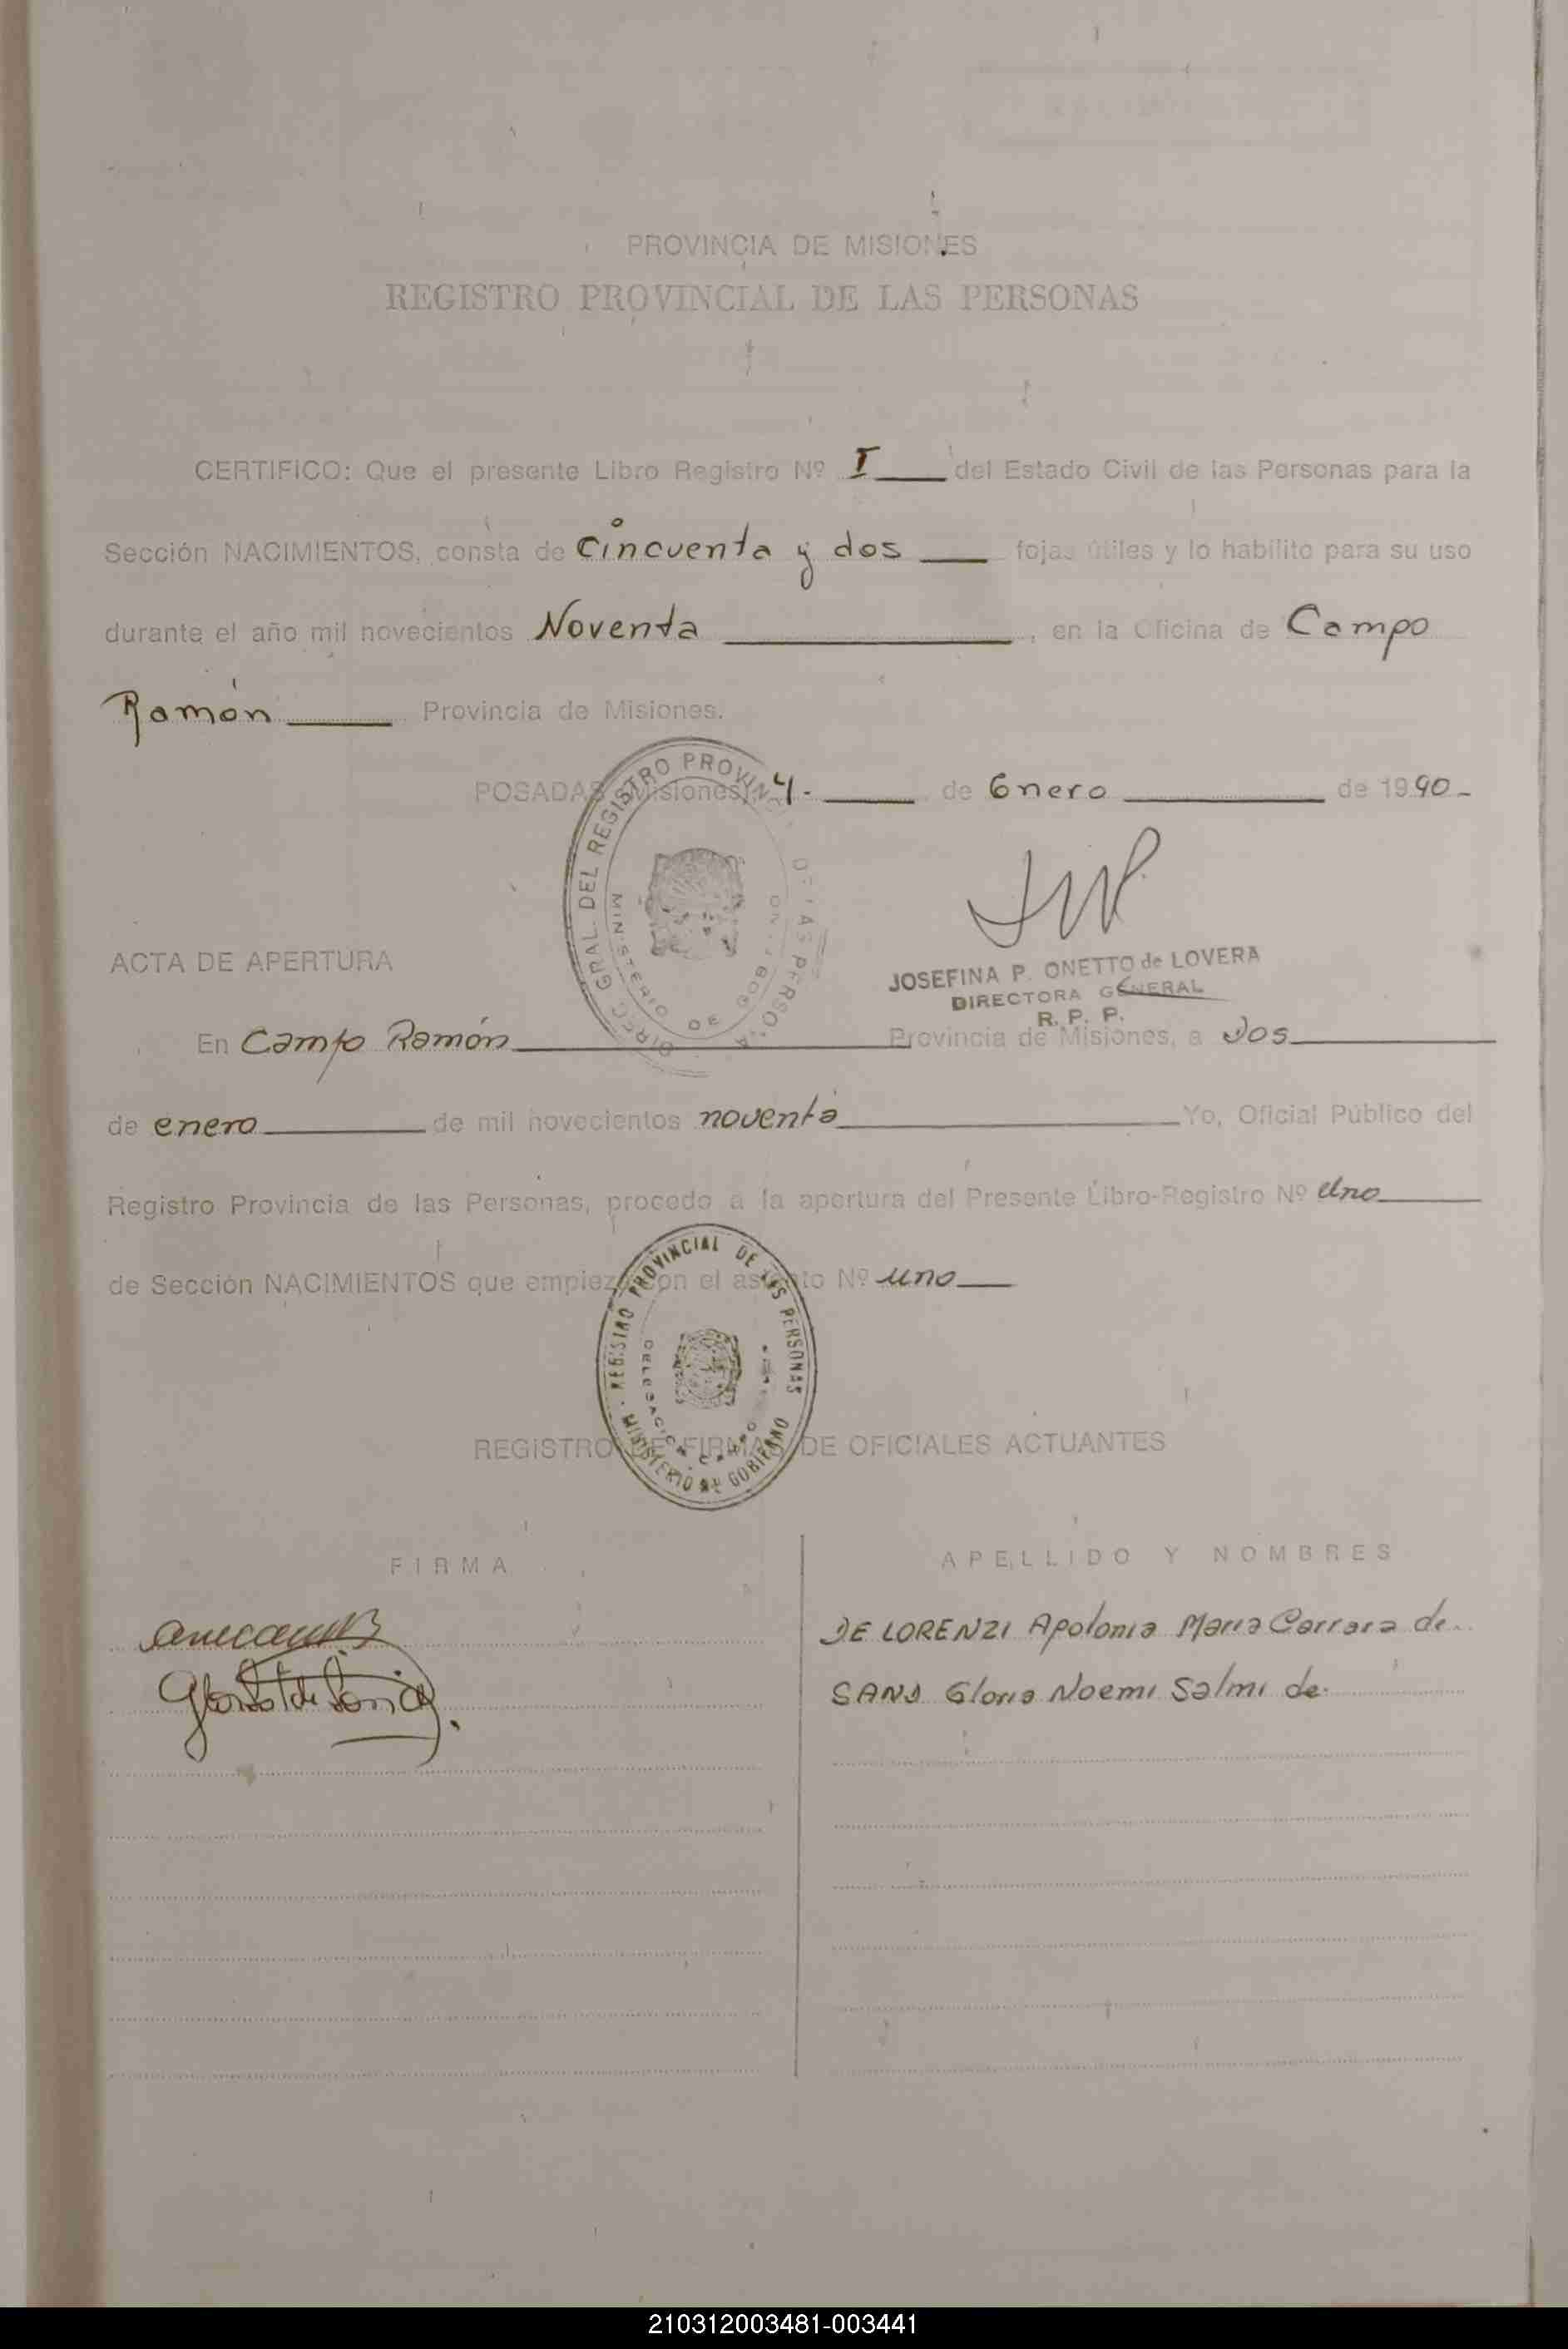 PROVINCIA DE MISIONES
REGISTRO PROVINCIAL DE LAS PERSONAS
CERTIFICO: Que el presente Libro Registro Nº I del Estado Civil de las Personas para la
Sección NACIMIENTOS, consta de Cincuenta y dos fojas útiles y lo habilito para su uso
durante el año mil novecientos Noventa , en la Oficina de Campo
Ramón Provincia de Misiones.
POSADAS (Misiones), 4.- de Enero de 1990-
DIREC. GRAL. DEL REGISTRO PROVINCIAL DE LAS PERSONAS
MINISTERIO DE GOBIERNO
JOSEFINA P. ONETTO de LOVERA
DIRECTORA GENERAL
R. P. P.
ACTA DE APERTURA
En Campo Ramón Provincia de Misiones, a dos
de enero de mil novecientos noventa Yo, Oficial Público del
Registro Provincia de las Personas, procedo a la apertura del Presente Libro-Registro Nº Uno
de Sección NACIMIENTOS que empieza con el asiento Nº uno
REGISTRO PROVINCIAL DE LAS PERSONAS
MINISTERIO DE GOBIERNO
REGISTRO DE FIRMAS DE OFICIALES ACTUANTES
FIRMA
APELLIDO Y NOMBRES
DE LORENZI Apolonia Maria Carrara de.
SANS Gloria Noemi Salmi de.
210312003481-003441